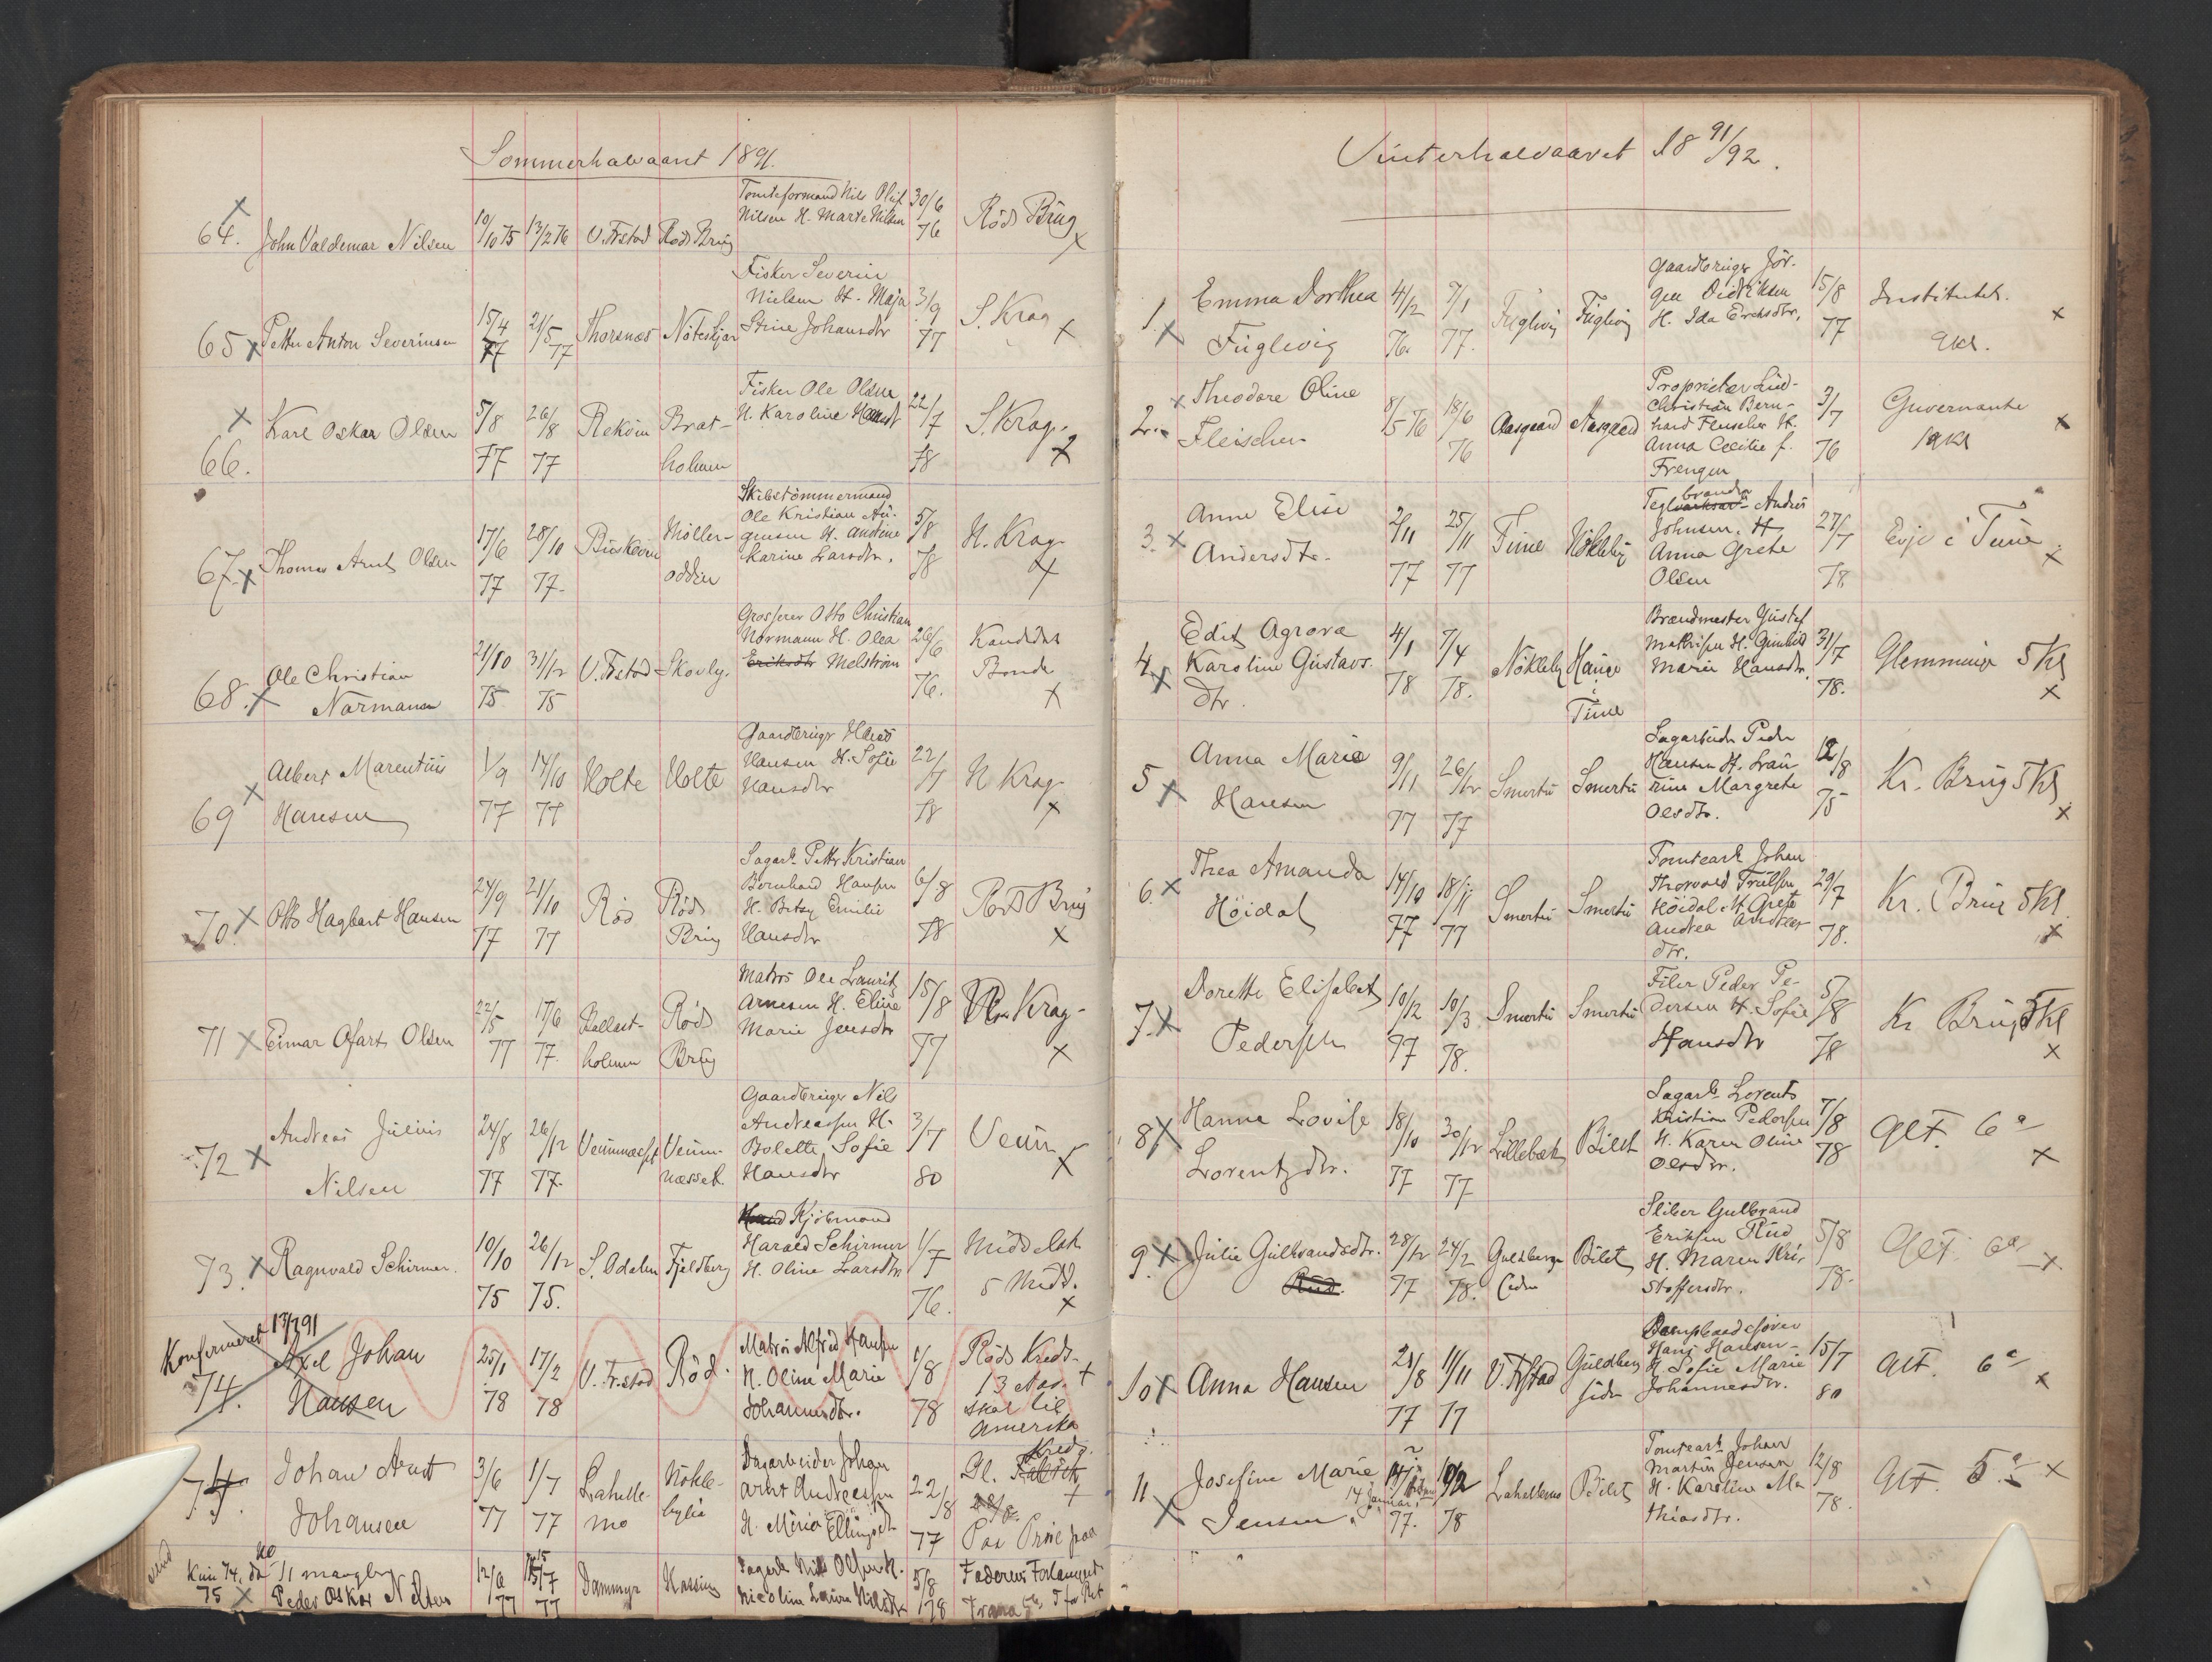 Sommerhalvaaret 1891.
64. John Valdemar Nilsen 10/10 75 13/2 76 V. Frstad Röds Brug Tomteformand Nils Oluf 30/6 Röds Brug
Nilsen H. Marte Nilsen 76
65 Petter Anton Severinsen 15/4 77 21/5 77 Thorsnæs Nöteskjær Fisker Severin
Nielsen H. Maja 3/9 S. Krag
Stine Johansdtr 77
66. Karl Oskar Olsen 5/8 26/8 Reköin Brat- Fisker Ole Olsen 22/7 S. Krag.
77 77 holmen H. Karoline 78
67. Thomas Arnt Olsen 17/6 28/10 Möller- Skibstömmermand
Ole Kristian Au- 5/8 N. Krag
gensen H. Andrine
77 77 odden Karine Larsdtr. 78
68. Ole Christian 21/10 31/12 V. Frstad Skovly. Grosserer Otto Christian
Normann 75 75 Normann H. Olea 26/6 Kandidat
Eriksdtr Melström 76. Bonde
69 Albert Marentius 1/9 14/10 Holte Holte Gaardbruger Hans
Hansen 77 77 Hansen H. Sofie 22/7 N Krag
Hansdtr 78
70. Otto Hagbart Hansen 24/9 21/10 Röd Röds Sagarb. Petter Kristian
77 77 Brug Bernhard Hansen 6/8 Röds Brug
H. Betzy Emilie
Hansdtr 78
71 Einar Olsen 22/5 17/6 Ballast- Röds Matros Ole Lauritz 15/8 Krag-
77 77. holmen Brug Arnesen H. Eline
Marie Jensdtr 77
72 Andreas Julius 24/8 26/12 Veum- Gaardbruger Nils
Nilsen 77 77. næsset. Andreassen H. 3/7 Veum
Bolette Sofie
Hansdtr 80
73. Ragnvald Schirmer. 10/10 26/12 S. Odalen Fjeldberg Kjöbmand
75 75. Harald Schirmer 1/7 Middelsk
H. Oline Larsdtr 76. 5 Midd.
Konfirmeret
74. Axel Johan 25/1 17/2 V. Frstad Röd. Matros Alfred Hansen 1/8 Röds Kreds-
Hansen 78 78 H. Oline Marie 13 Aar.
Johannesdtr. 78 skal til
Amerika
74. Johan Arnt 3/6 1/7 Lahelle- Nökle- Dagarbeider Johan
Johansen 77 77 mo bylia Arnt Andreassen 22/8 Gl.
H. 77 Kreds.
Kun 74, da No 11 mangler
75 Peder Oskar Nilsen 12/6 77 Dammyr Kassing Dagarb. Nils Olsen H. 5/8
Nicoline Laura Nilsdtr 78
Vinterhalvaaret 18 91/92.
1. Emma Dorthea 4/12 7/1 Fuglevig Fuglevig Gaardbruger Jör- 15/8 Institutet.
Fuglevig 76. 77. gen Didriksen
H. Ida Ericksdtr. 77 9kl.
2. Theodore Oline 8/5 76 18/6 Aasgaard Aasgaard Proprietær Lud- 3/7 Guvernante
Fleischer 76 Christian Bern-
hard Fleischer H.
Anna Cecilie f. 76
Frengen
3. Anne Elise 2/11 25/11 Tune Nökleby Andres
Andersdtr. 77 77 Johnsen. H. 27/7 Evje i Tune
Anna Grete
Olsen 78
4. Edit Agrora 4/1 7/4 Nökleby Hauge Brændmester Gustaf
Karoline Gustavs- 78 78. i H. 31/7 Glemminge 5 Kl
dtr. Tune Marie Hansdtr. 78.
5 Anna Marie 9/11 26/12 Smertu Smertu Sagarbeider Peder
Hansen 77 77 Hansen H. Lau- 12/8 Kr. Brug 5 Kl
rine Margrete 75
Olsdtr.
6. Thea Amanda 14/10 18/11 Smertu Smertu Tomtearb. Johan
Höidal 77 77 Thorvald Trulsen 29/7 Kr. Brug 5 Kl
Höidal H. Grete
Andrea Andreas- 78.
dtr.
7. Dorette Elisabet 10/12 10/3 Smertu Smertu Filer Peder Pe- 5/8
Pedersen 77 78. dersen H. Sofie Kr Brug 5 Kl
Hansdtr 78
8 Hanna Lovise 18/10 30/12 Lillebæk Bilet Sagarb. Lorents
Lorentzdtr. 77 77 Kristian Pedersen 7/8 Glf. 6 a
H. Karen Oline 78
Olsdtr.
9. Julie Gulbrandsdtr. 28/12 24/2 Guldberg- Bilet Sliber Gulbrand
Rud. 77 78. siden Eriksen Rud 5/8 Glf. 6a
H. Maren Kri-
stoffersdtr. 78.
10 Anna Hansen 21/8 11/11 V. Frstad Guldberg
77 77 siden Hans Hansen 15/7 Glf. 6 a
H. Sofie Marie
Johannesdtr. 80
11 Josefine Marie 14 Januar 10/2 Lahellemo Bilet Tomtearb. Johan
Jensen 77. 78 Martin Jensen 12/8 Glf. 5 a
H. Karoline Ma- 78.
thiasdtr.